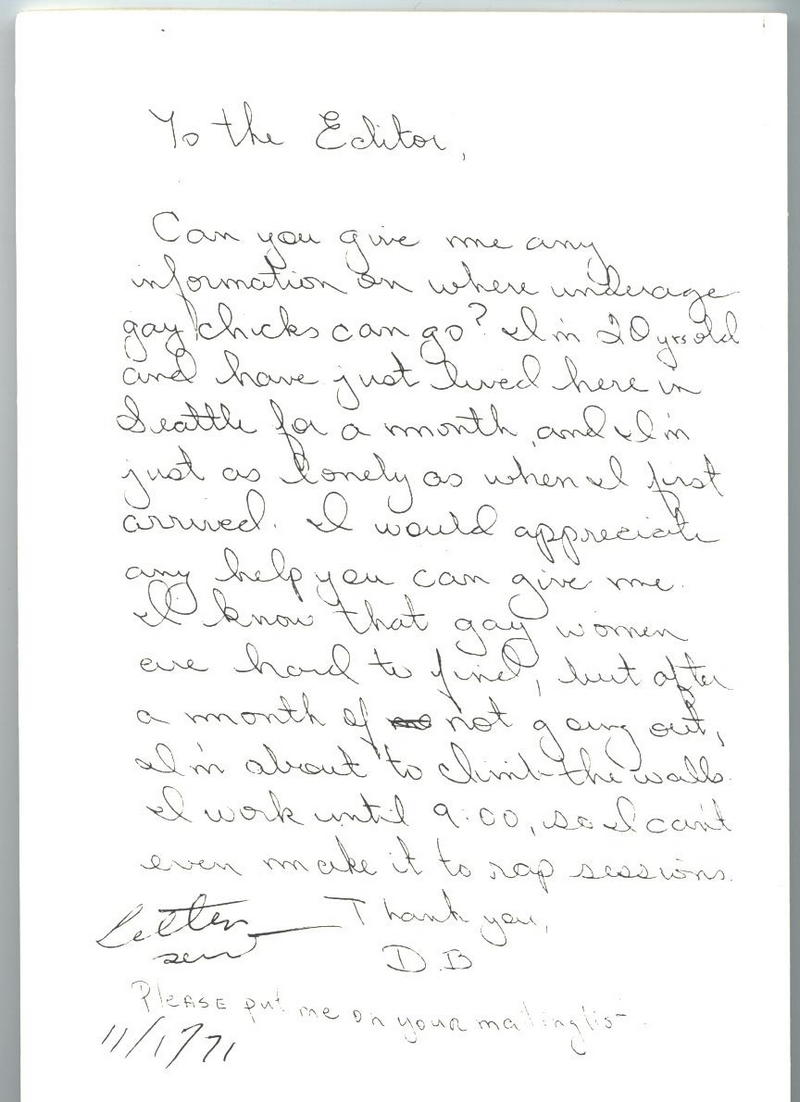 To the Editor,
Can you give me any
information on where underage
gay chicks can go? I'm 20 yrs old
and have just lived here in
Seattle for a month, and I'm
just as lonely as when I first
arrived. I would appreciate
any help you can give me.
I know that gay women
are hard to find, but after
a month of not going out,
I'm about to climb the walls.
I work until 9:00, so I can't
even make it to rap sessions.
Thank you,
D.B
Letter
sent
Please put me on your mailing list.
11/1/71